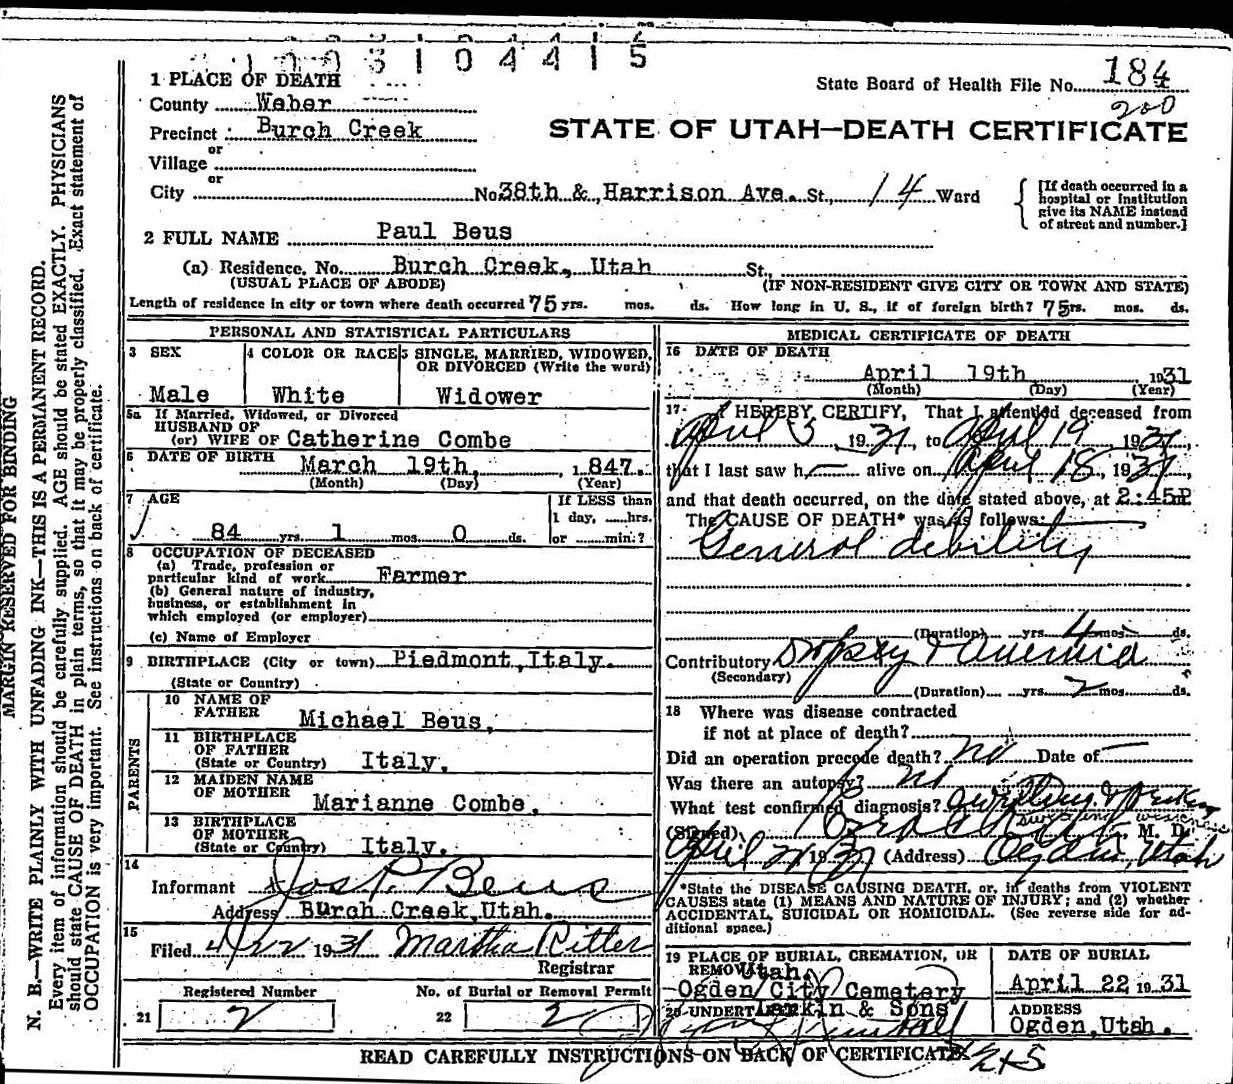 1003104415
1 PLACE OF DEATH
State Board of Health File No. 184
200
County Weber
Precinct Burch Creek
STATE OF UTAH—DEATH CERTIFICATE
or
Village
or
City No 38th & Harrison Ave. St., 14 Ward
[If death occurred in a hospital or institution give its NAME instead of street and number.]
2 FULL NAME Paul Beus
(a) Residence. No. Burch Creek, Utah St.,
(USUAL PLACE OF ABODE) (IF NON-RESIDENT GIVE CITY OR TOWN AND STATE)
Length of residence in city or town where death occurred 75 yrs. mos. ds. How long in U. S., if of foreign birth? 75 rs. mos. ds.
PERSONAL AND STATISTICAL PARTICULARS
3 SEX
Male
4 COLOR OR RACE
White
5 SINGLE, MARRIED, WIDOWED, OR DIVORCED (Write the word)
Widower
5a If Married, Widowed, or Divorced
HUSBAND OF
(or) WIFE OF Catherine Combe
6 DATE OF BIRTH March 19th, 1847.
(Month) (Day) (Year)
7 AGE
84 yrs. 1 mos. 0 ds.
If LESS than
1 day, ......hrs.
or ......min.?
8 OCCUPATION OF DECEASED
(a) Trade, profession or
particular kind of work Farmer
(b) General nature of industry,
business, or establishment in
which employed (or employer)
(c) Name of Employer
9 BIRTHPLACE (City or town) Piedmont, Italy.
(State or Country)
PARENTS
10 NAME OF
FATHER Michael Beus,
11 BIRTHPLACE
OF FATHER
(State or Country) Italy.
12 MAIDEN NAME
OF MOTHER Marianne Combe,
13 BIRTHPLACE
OF MOTHER
(State or Country) Italy.
14
Informant Jas P. Beus
Address Burch Creek, Utah.
15
Filed 4/22 1931 Martha Ritter
Registrar
Registered Number
21 2
No. of Burial or Removal Permit
22 2
MEDICAL CERTIFICATE OF DEATH
16 DATE OF DEATH
April 19th 1931
(Month) (Day) (Year)
17- I HEREBY CERTIFY, That I attended deceased from
April 3, 1931, to April 19, 1931,
that I last saw h— alive on April 18, 1931,
and that death occurred, on the date stated above, at 2:45P
The CAUSE OF DEATH* was as follows:
General debility
(Duration) yrs. 4 mos. ds.
Contributory Dropsy & Anemia
(Secondary)
(Duration) yrs. 2 mos. ds.
18 Where was disease contracted
if not at place of death?
Did an operation precede death? no Date of —
Was there an autopsy? no
What test confirmed diagnosis?
(Signed) M. D.
April 21 1931 (Address) Ogden, Utah
*State the DISEASE CAUSING DEATH, or, in deaths from VIOLENT
CAUSES state (1) MEANS AND NATURE OF INJURY; and (2) whether
ACCIDENTAL, SUICIDAL OR HOMICIDAL. (See reverse side for ad-
ditional space.)
19 PLACE OF BURIAL, CREMATION, OR
REMOVAL Utah.
Ogden City Cemetery
DATE OF BURIAL
April 22 1931
20 UNDERTAKER Larkin & Sons
ADDRESS
Ogden, Utah.
READ CAREFULLY INSTRUCTIONS ON BACK OF CERTIFICATE.
245
MARGIN RESERVED FOR BINDING
N. B.—WRITE PLAINLY WITH UNFADING INK—THIS IS A PERMANENT RECORD.
Every item of information should be carefully supplied. AGE should be stated EXACTLY. PHYSICIANS
should state CAUSE OF DEATH in plain terms, so that it may be properly classified. Exact statement of
OCCUPATION is very important. See instructions on back of certificate.